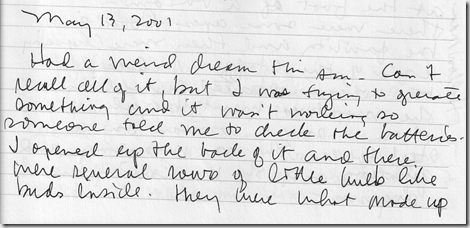 May 13, 2001
Had a weird dream this am - Can't
recall all of it, but I was trying to operate
something and it wasn't working so
someone told me to check the batteries.
I opened up the back of it and there
were several rows of little bulb like
buds inside. They were what made up